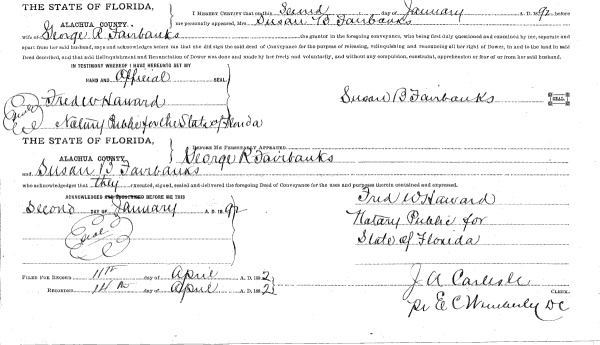 THE STATE OF FLORIDA,
ALACHUA COUNTY.
I HEREBY CERTIFY that on this Second day of January A. D. 1892 before
me personally appeared, Mrs Susan B Fairbanks
wife of George R Fairbanks the grantor in the foregoing conveyance, who being first duly questioned and examined by me, separate and
apart from her said husband, says and acknowledges before me that she did sign the said deed of Conveyance for the purpose of releasing, relinquishing and renouncing all her right of Dower, in and to the land in said
Deed described, and that said Relinquishment and Renunciation of Dower was done and made by her freely and voluntarily, and without any compulsion, constraint, apprehension or fear of or from her said husband.
IN TESTIMONY WHEREOF I HAVE HEREUNTO SET MY
HAND AND Official
Seal
Fred W Haward
Notary Public for the State of Florida
Susan B Fairbanks
SEAL
THE STATE OF FLORIDA,
ALACHUA COUNTY.
BEFORE ME PERSONALLY APPEARED
George R Fairbanks
and Susan B Fairbanks
who acknowledges that they executed, signed, sealed and delivered the foregoing Deed of Conveyance for the uses and purposes therein contained and expressed.
ACKNOWLEDGED AND SUBSCRIBED BEFORE ME THIS
Second DAY OF January A. D. 1892
Seal
Fred W Haward
Notary Public for
State of Florida
FILED FOR RECORD 11th day of April A. D. 1892
RECORDED 14th day of April A. D. 1892
J A Carlisle
CLERK.
Pr E C Wimberly DC